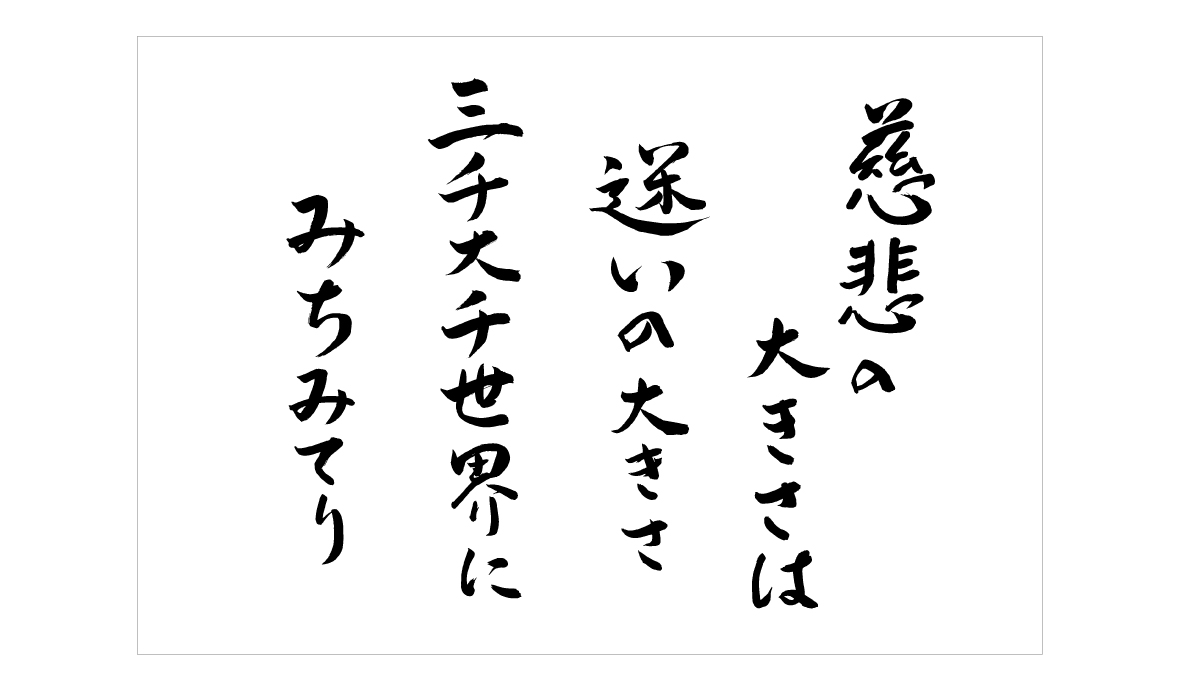 慈悲の
大きさは
迷いの大きさ
三千大千世界に
みちみてり